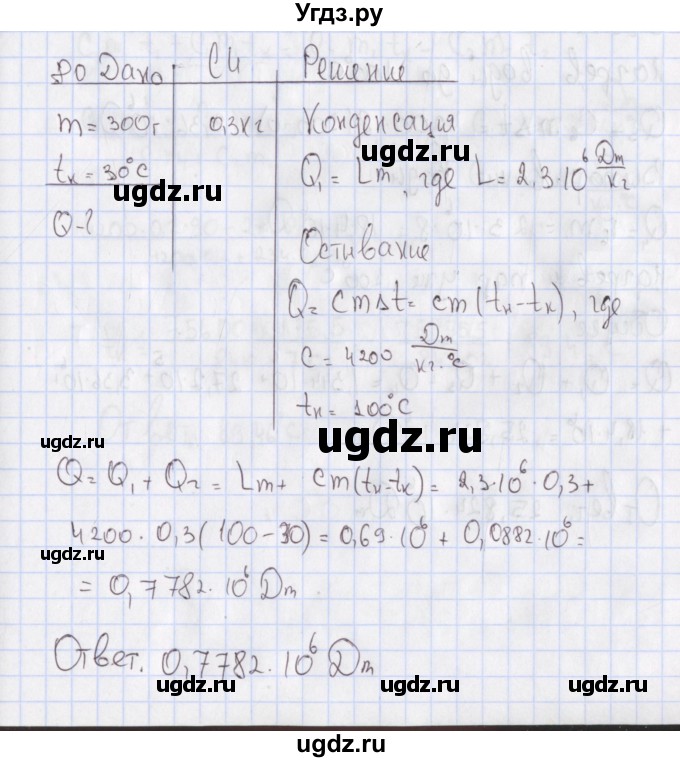 Угдз.ру
90 Дано: СИ Решение
m = 300г 0,3кг Конденсация
tк = 30°С Q₁ = Lm, где L = 2,3·10⁶ Дж/кг
Q-?
Остывание
Q₂ = cm∆t = cm(tн-tк), где
c = 4200 Дж/кг·°С
tн = 100°С
ugdz.ru
ugdz.ru
ugdz.ru
Q = Q₁ + Q₂ = Lm + cm(tн-tк) = 2,3·10⁶·0,3+
4200·0,3(100-30) = 0,69·10⁶ + 0,0882·10⁶ =
ugdz.ru
ugdz.ru
= 0,7782·10⁶ Дж
Ответ. 0,7782·10⁶ Дж
ugdz.ru
ugdz.ru
ugdz.ru
ugdz.ru
ugdz.ru